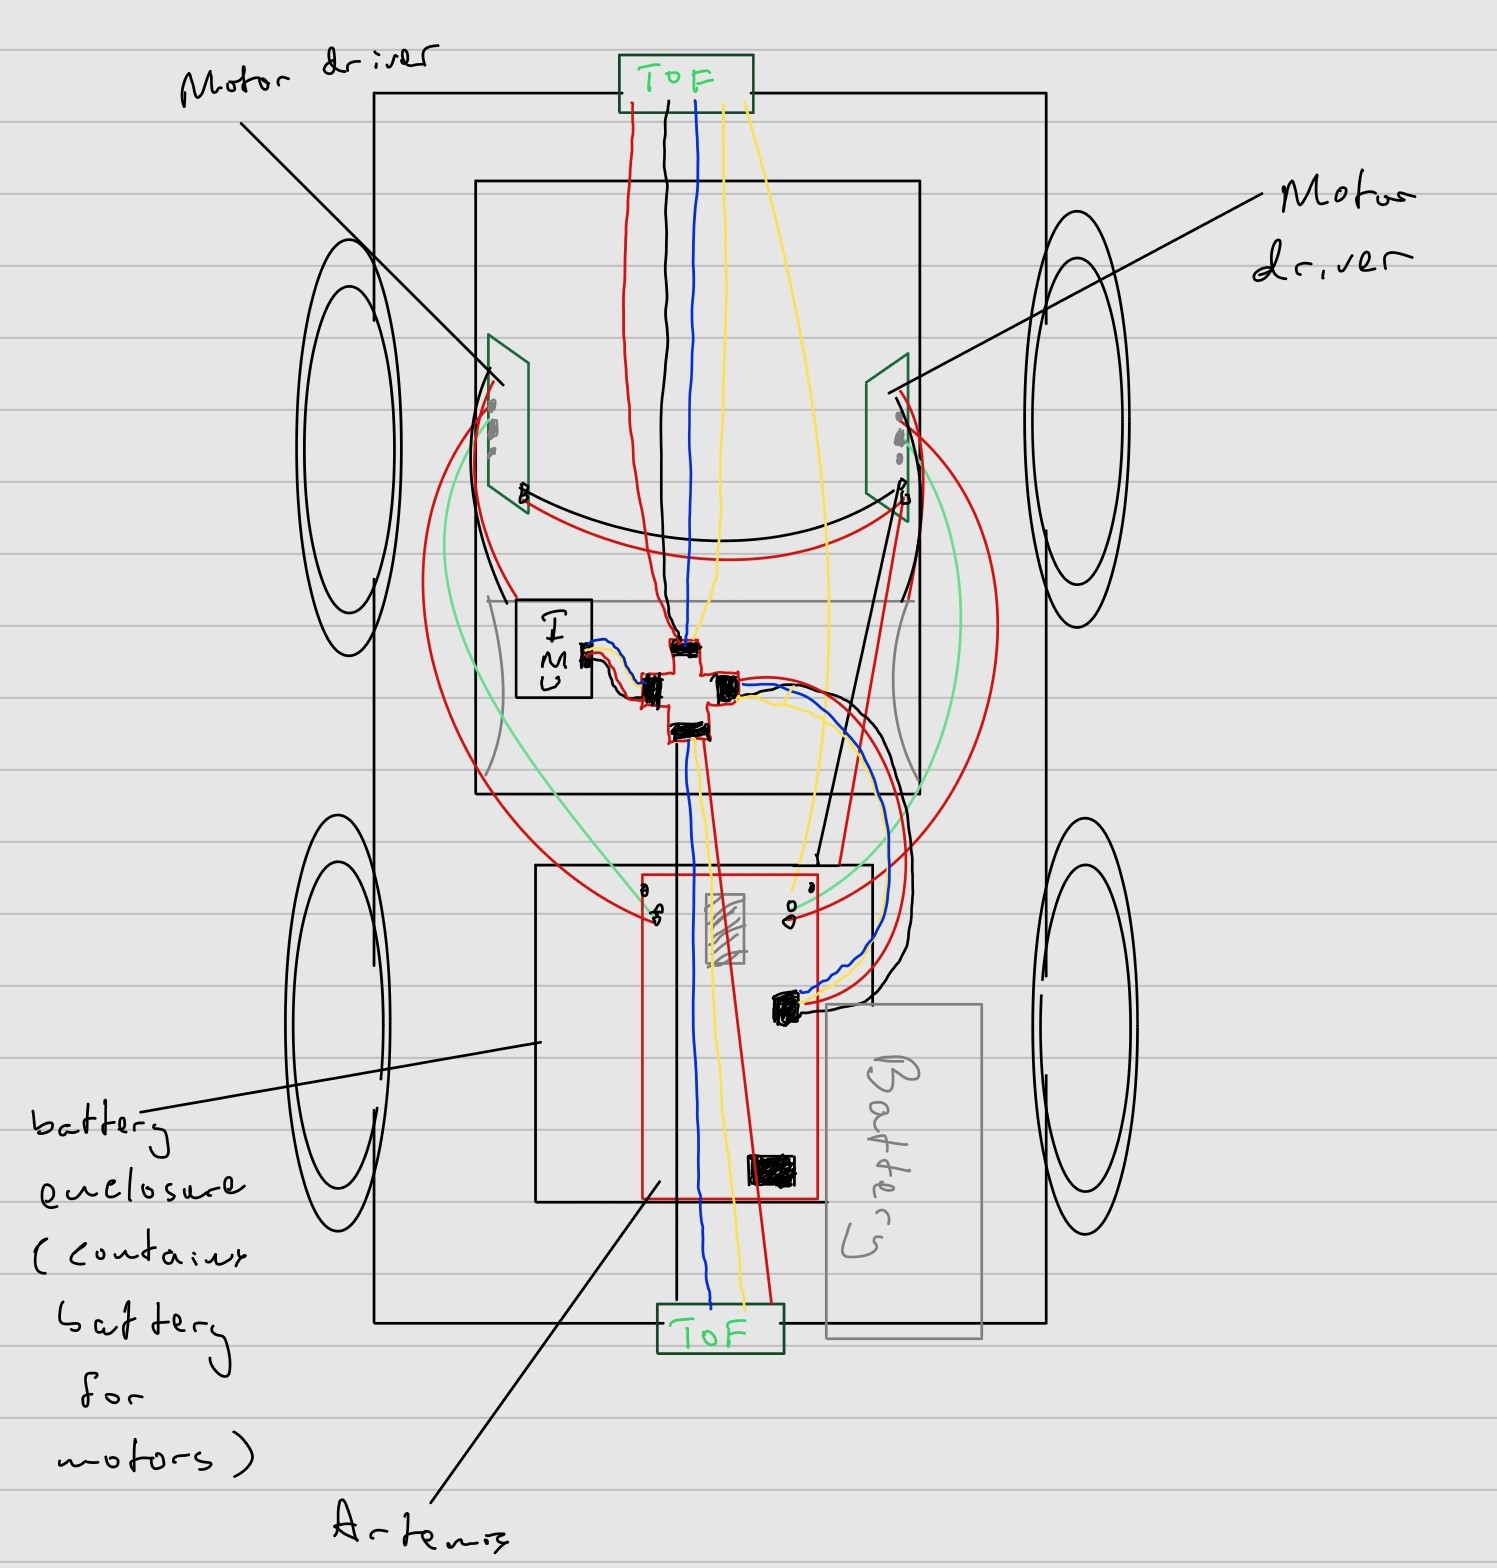 Motor driver
TOF
Motor
driver
IMU
Battery
battery
enclosure
(contains
battery
for
motors)
TOF
Artemis